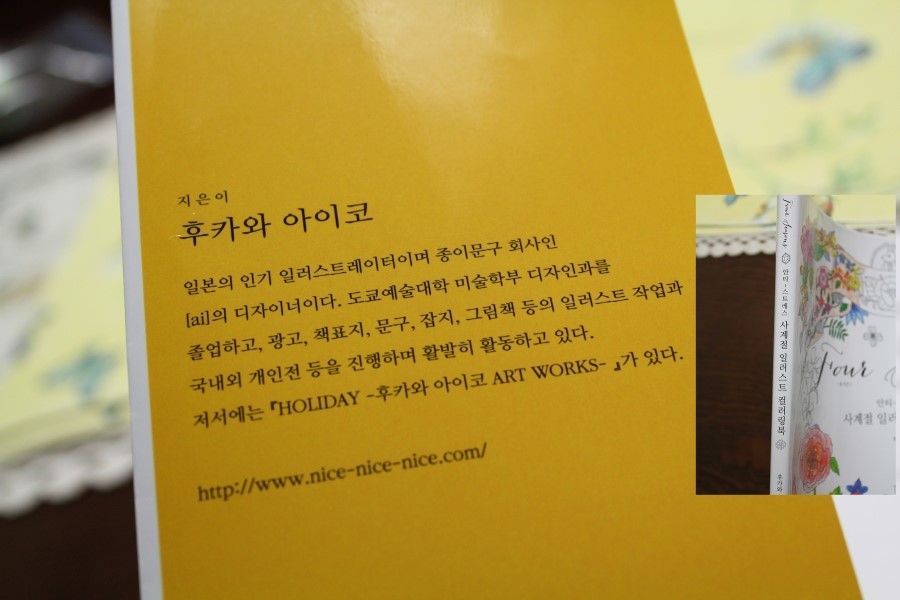 지은이
후카와 아이코
일본의 인기 일러스트레이터이며 종이문구 회사인
[ai]의 디자이너이다. 도쿄예술대학 미술학부 디자인과를
졸업하고, 광고, 책표지, 문구, 잡지, 그림책 등의 일러스트 작업과
국내외 개인전 등을 진행하며 활발히 활동하고 있다.
저서에는 『HOLIDAY -후카와 아이코 ART WORKS- 』가 있다.
http://www.nice-nice-nice.com/
Four Seasons 안티-스트레스 사계절 일러스트 컬러링북
후카와
Four
안티-
사계절 일러